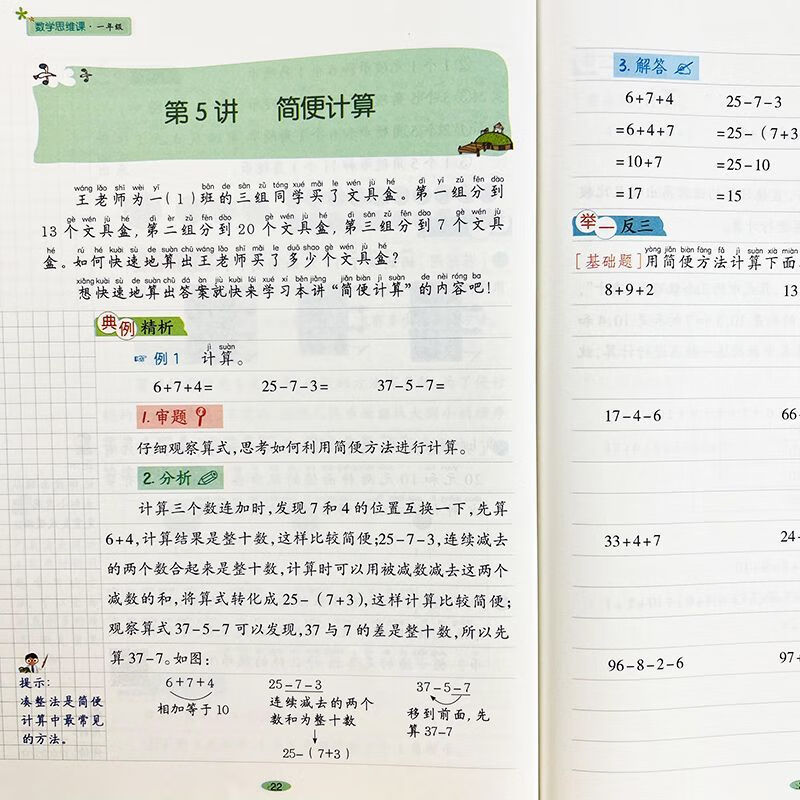 数学思维课·一年级
第5讲 简便计算
wáng lǎo shī wèi yī bān de sān zǔ tóng xué mǎi le wén jù hé dì yī zǔ fēn dào
王老师为一(1)班的三组同学买了文具盒。第一组分到
gè wén jù hé dì èr zǔ fēn dào gè wén jù hé dì sān zǔ fēn dào gè wén jù
13个文具盒,第二组分到20个文具盒,第三组分到7个文具
hé rú hé kuài sù de suàn chū wáng lǎo shī mǎi le duō shao gè wén jù hé
盒。如何快速地算出王老师买了多少个文具盒?
xiǎng kuài sù de suàn chū dá àn jiù kuài lái xué xí běn jiǎng jiǎn biàn jì suàn de nèi róng ba
想快速地算出答案就快来学习本讲“简便计算”的内容吧!
典例精析
jì suàn
例1 计算。
6+7+4= 25-7-3= 37-5-7=
1.审题
仔细观察算式,思考如何利用简便方法进行计算。
2.分析
计算三个数连加时,发现7和4的位置互换一下,先算
6+4,计算结果是整十数,这样比较简便;25-7-3,连续减去
的两个数合起来是整十数,计算时可以用被减数减去这两个
减数的和,将算式转化成25-(7+3),这样计算比较简便;
观察算式37-5-7可以发现,37与7的差是整十数,所以先
算37-7。如图:
6+7+4 25-7-3 37-5-7
相加等于10
连续减去的两个
数和为整十数
25-(7+3)
移到前面,先
算37-7
提示:
凑整法是简便
计算中最常见
的方法。
22
3.解答
6+7+4 25-7-3
=6+4+7 =25-(7+3
=10+7 =25-10
=17 =15
举一反三
yòng jiǎn biàn fāng fǎ jì suàn xià miàn
[基础题]用简便方法计算下面
8+9+2 13
17-4-6 66-
33+4+7 24-
96-8-2-6 97+